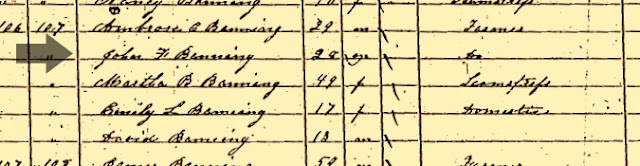 Nancy Banning 18 f Seamstress
106 107 Ambrose A Banning 29 m Farmer
" John F Banning 28 m do
" Martha B Banning 49 f Seamstress
" Emily L Banning 17 f Domestic
" David Banning 13 m
107 108 Banning 59 m Farmer